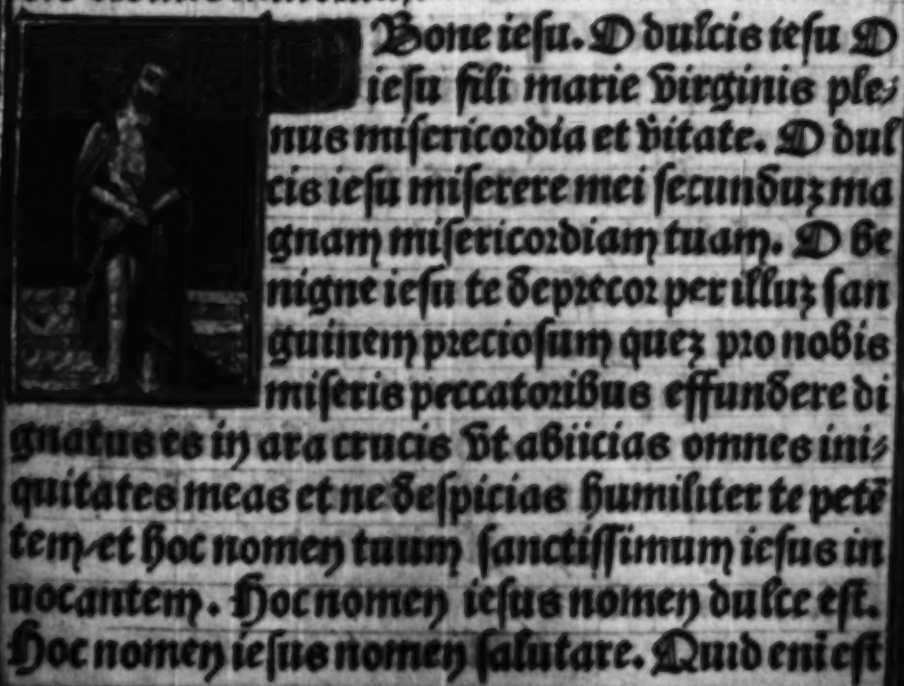 O Bone iesu. O dulcis iesu O
iesu fili marie virginis ple⸗
nus misericordia et v̇itate. O dul
cis iesu miserere mei secunduꝫ ma
gnam misericordiam tuam. O be
nigne iesu te deprecor per illuꝫ san
guinem preciosum queꝫ pro nobis
miseris peccatoribus effundere di
gnatus es in ara crucis vt abiicias omnes ini⸗
quitates meas et ne despicias humiliter te petē
tem/et hoc nomen tuum sanctissimum iesus in
uocantem. Hoc nomen iesus nomen dulce est.
Hoc nomen iesus nomen salutare. Quid eni est